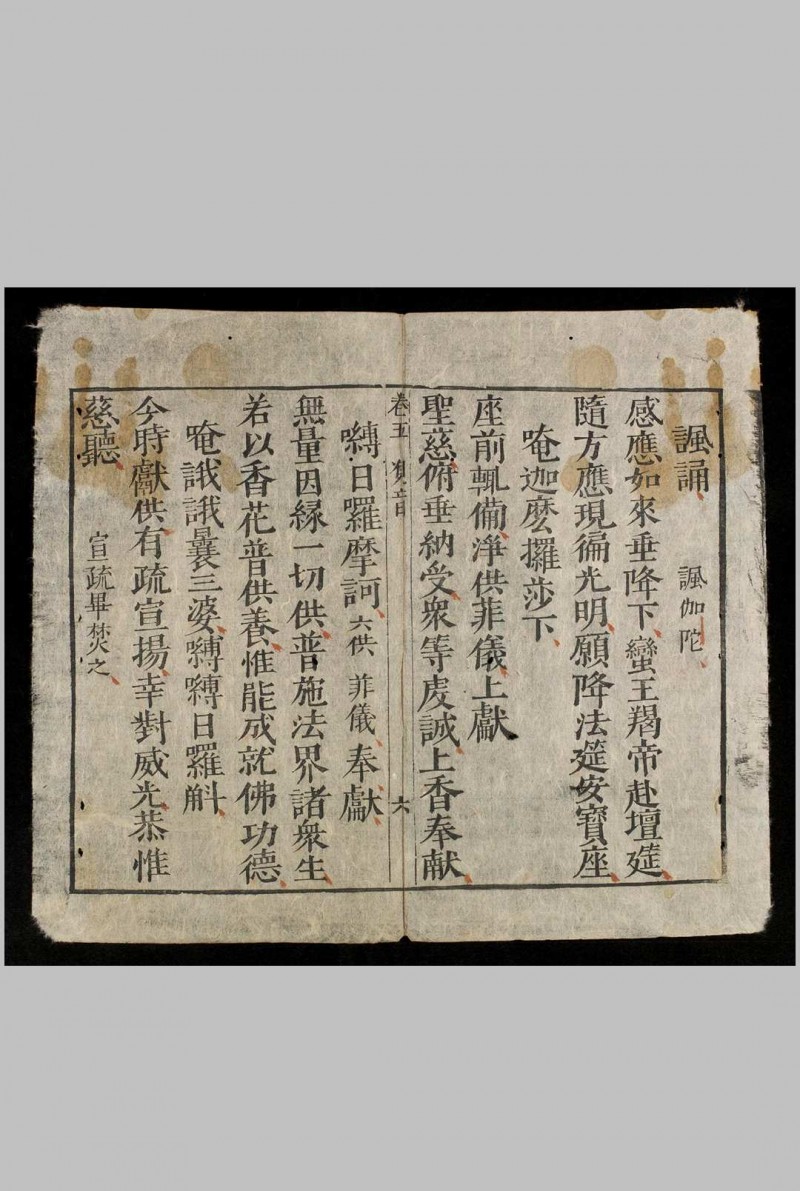 諷誦 諷伽陀
感應如來垂降下蠻王羯帝赴壇筵
隨方應現徧光明願降法筵安寶座
唵迦麽攞莎下
座前輒備淨供菲儀上獻
聖慈俯垂納受衆等虔誠上香奉献
卷五 六
嚩日羅摩訶 六供 菲儀奉獻
無量因緣一切供普施法界諸衆生
若以香花普供養惟能成就佛功德
唵誐誐曩三婆嚩嚩日羅斛
今時獻供有疏宣揚幸對威光恭惟
慈聽 宣疏畢焚之